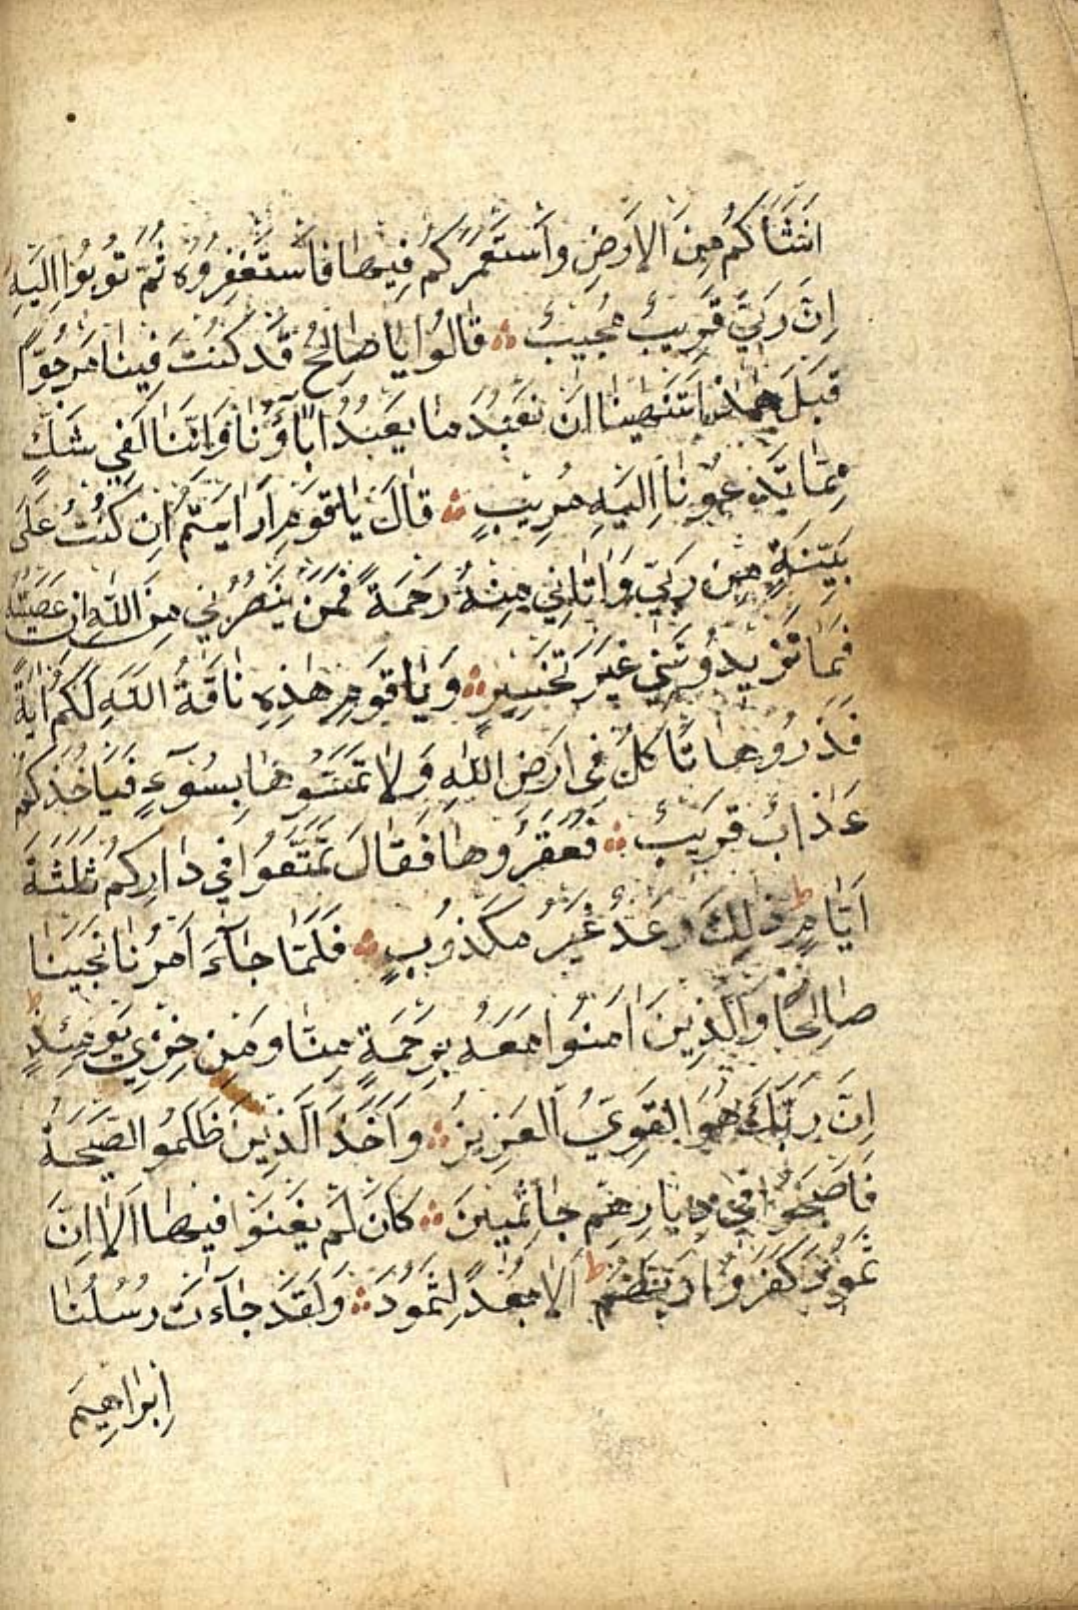 اَنْشَأَكُمْ مِنَ الْاَرْضِ وَاسْتَعْمَرَكُمْ فِيهَا فَاسْتَغْفِرُوهُ ثُمَّ تُوبُوا اِلَيْهِ
اِنَّ رَبِّي قَرِيبٌ مُجِيبٌ ۞ قَالُوا يَا صَالِحُ قَدْ كُنْتَ فِينَا مَرْجُوًّا
قَبْلَ هٰذَا اَتَنْهٰينَا اَنْ نَعْبُدَ مَا يَعْبُدُ اٰبَآؤُنَا وَاِنَّنَا لَفِي شَكٍّ
مِمَّا تَدْعُونَا اِلَيْهِ مُرِيبٍ ۞ قَالَ يَا قَوْمِ اَرَاَيْتُمْ اِنْ كُنْتُ عَلٰى
بَيِّنَةٍ مِنْ رَبِّي وَاٰتَانِي مِنْهُ رَحْمَةً فَمَنْ يَنْصُرُنِي مِنَ اللّٰهِ اِنْ عَصَيْتُهُ
فَمَا تَزِيدُونَنِي غَيْرَ تَخْسِيرٍ ۞ وَيَا قَوْمِ هٰذِهِ نَاقَةُ اللّٰهِ لَكُمْ اٰيَةً
فَذَرُوهَا تَاْكُلْ فِي اَرْضِ اللّٰهِ وَلَا تَمَسُّوهَا بِسُوٓءٍ فَيَاْخُذَكُمْ
عَذَابٌ قَرِيبٌ ۞ فَعَقَرُوهَا فَقَالَ تَمَتَّعُوا فِي دَارِكُمْ ثَلٰثَةَ
اَيَّامٍ ط ذٰلِكَ وَعْدٌ غَيْرُ مَكْذُوبٍ ۞ فَلَمَّا جَآءَ اَمْرُنَا نَجَّيْنَا
صَالِحًا وَالَّذِينَ اٰمَنُوا مَعَهُ بِرَحْمَةٍ مِنَّا وَمِنْ خِزْيِ يَوْمِئِذٍ ط
اِنَّ رَبَّكَ هُوَ الْقَوِيُّ الْعَزِيزُ ۞ وَاَخَذَ الَّذِينَ ظَلَمُوا الصَّيْحَةُ
فَاَصْبَحُوا فِي دِيَارِهِمْ جَاثِمِينَ ۞ كَاَنْ لَمْ يَغْنَوْا فِيهَا اَلَا اِنَّ
ثَمُودَ كَفَرُوا رَبَّهُمْ ط اَلَا بُعْدًا لِثَمُودَ ۞ وَلَقَدْ جَآءَتْ رُسُلُنَا
اِبْرَاهِيمَ